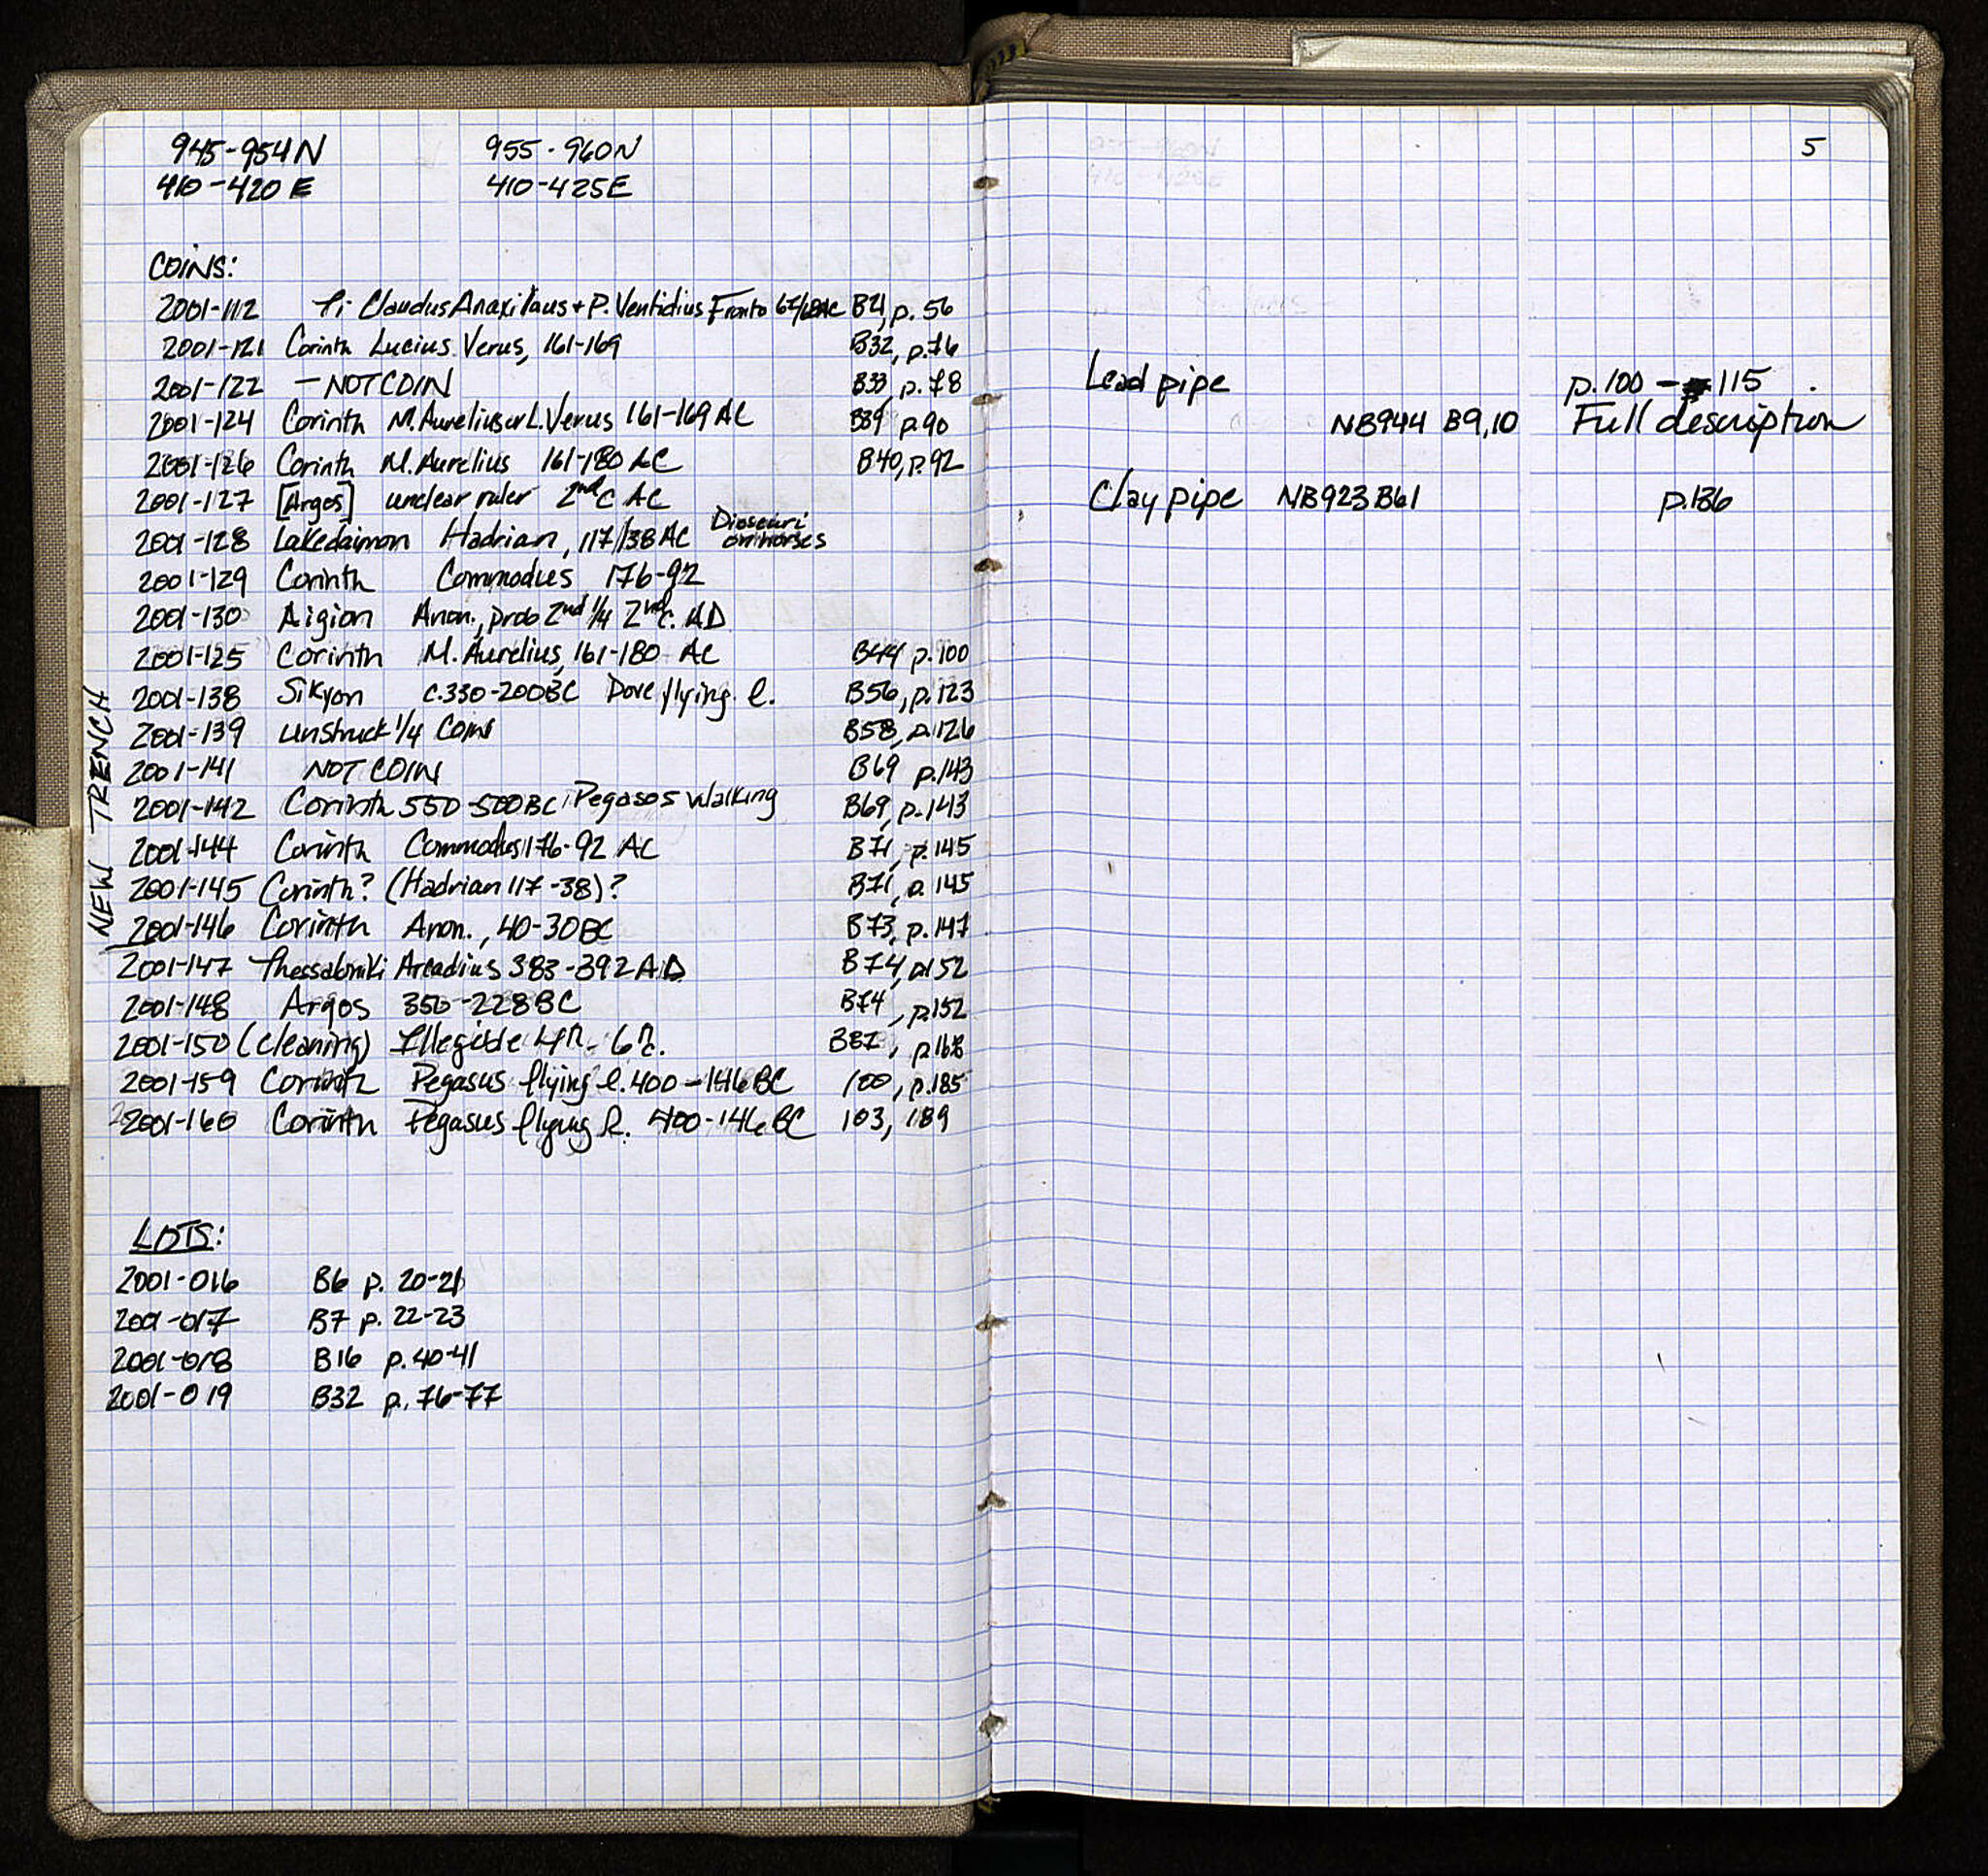 945-954N 955-960N
410-420E 410-425E
COINS:
2001-112 Ti Claudus Anaxilaus + P. Ventidius Fronto 67/68AC B21, p. 56
2001-121 Corinth Lucius Verus, 161-169 B32, p.76
2001-122 - NOT COIN B33, p.78
2001-124 Corinth M. Aurelius or L. Verus 161-169 AC B39 p.90
2001-126 Corinth M. Aurelius 161-180 AC B40, p.92
2001-127 [Argos] unclear ruler 2nd C AC
2001-128 Lakedaimon Hadrian, 117/138 AC Dioscuri on horses
2001-129 Corinth Commodus 176-92
2001-130 Aigion Anon., prob 2nd 1/4 2nd c. AD
2001-125 Corinth M. Aurelius, 161-180 AC B44 p.100
2001-138 Sikyon c.330-200BC Dove flying l. B56, p.123
2001-139 unstruck 1/4 Coin B58, p.126
2001-141 NOT COIN B69 p.143
2001-142 Corinth 550-500BC, Pegasos walking B69, p.143
2001-144 Corinth Commodus 176-92 AC B71, p.145
2001-145 Corinth? (Hadrian 117-38)? B71, p. 145
2001-146 Corinth Anon., 40-30BC B73, p.147
2001-147 Thessaloniki Arcadius 383-392 AD B74, p152
2001-148 Argos 350-228BC B74, p.152
2001-150 (cleaning) Illegible 4th - 6th c. B87, p.168
2001-159 Corinth Pegasus flying l. 400-146BC 100, p.185
2001-160 Corinth Pegasus flying l. 400-146BC 103, 189
NEW TRENCH
LOTS:
2001-016 B6 p. 20-21
2001-017 B7 p. 22-23
2001-018 B16 p. 40-41
2001-019 B32 p. 76-77
5
Lead pipe p.100 - 115
NB944 B9,10 Full description
Clay pipe NB923 B61 p.136